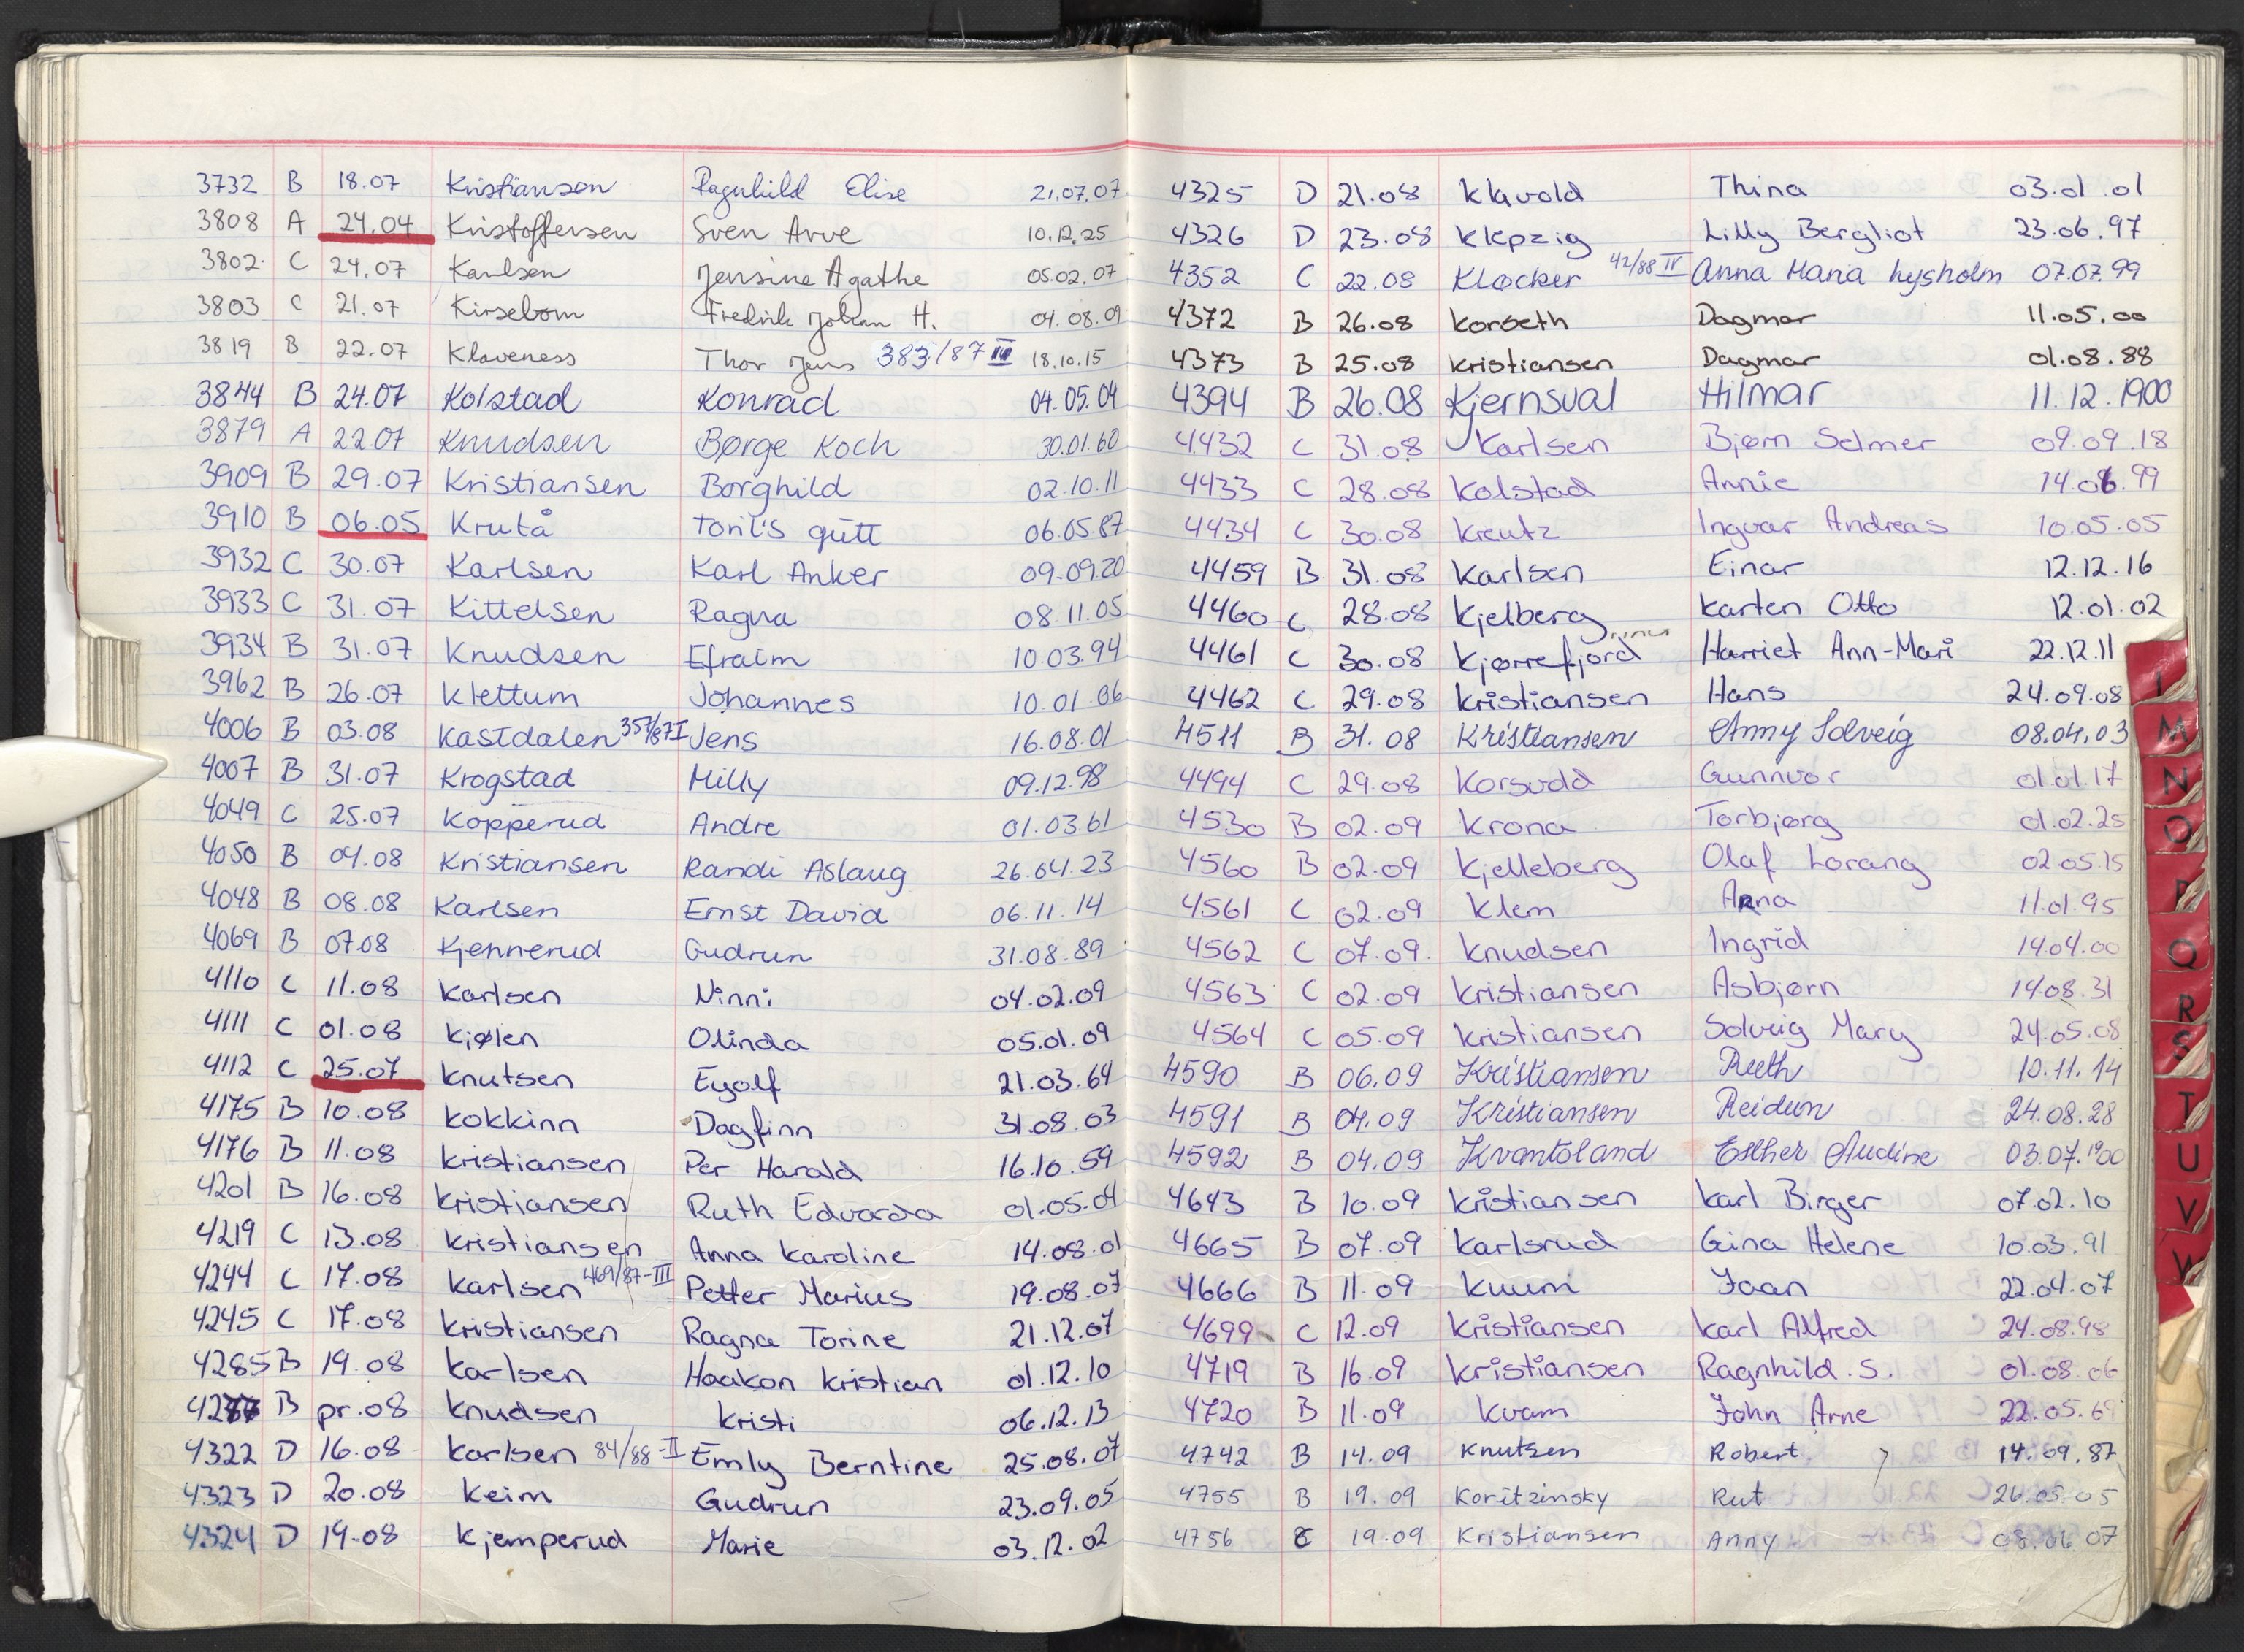 3732 B 18.07 Kristiansen Ragnhild Elise 21.07.07
3808 A 24.04 Kristoffersen Sven Arve 10.12.25
3802 C 24.07 Karlsen Jensine Agathe 05.02.07
3803 C 21.07 Kirsebom Fredrik Johan H. 04.08.09
3819 B 22.07 Klaveness Thor Jens 383/87 III 18.10.15
3844 B 24.07 Kolstad Konrad 04.05.04
3879 A 22.07 Knudsen Børge Koch 30.01.60
3909 B 29.07 Kristiansen Borghild 02.10.11
3910 B 06.05 Krutå Toril's gutt 06.05.87
3932 C 30.07 Karlsen Karl Anker 09.09.20
3933 C 31.07 Kittelsen Ragna 08.11.05
3934 B 31.07 Knudsen Efraim 10.03.94
3962 B 26.07 Klettum Johannes 10.01.06
4006 B 03.08 Kastdalen 357/87 I Jens 16.08.01
4007 B 31.07 Krogstad Milly 09.12.98
4049 C 25.07 Kopperud Andre 01.03.61
4050 B 04.08 Kristiansen Randi Aslaug 26.04.23
4048 B 08.08 Karlsen Ernst David 06.11.14
4069 B 07.08 Kjennerud Gudrun 31.08.89
4110 C 11.08 Karlsen Ninni 04.02.09
4111 C 01.08 Kjølen Olinda 05.01.09
4112 C 25.07 Knutsen Eyolf 21.03.64
4175 B 10.08 Kokkinn Dagfinn 31.08.03
4176 B 11.08 Kristiansen Per Harald 16.10.59
4201 B 16.08 Kristiansen Ruth Edvarda 01.05.04
4219 C 13.08 Kristiansen Anna Karoline 14.08.01
4244 C 17.08 Karlsen 469/87-III Petter Marius 19.08.07
4245 C 17.08 Kristiansen Ragna Torine 21.12.07
4285 B 19.08 Karlsen Haakon Kristian 01.12.10
B pr.08 Knudsen Kristi 06.12.13
4322 D 16.08 Karlsen 84/88-II Emly Berntine 25.08.07
4323 D 20.08 Keim Gudrun 23.09.05
4324 D 19.08 Kjemperud Marie 03.12.02
4325 D 21.08 Klavold Thina 03.01.01
4326 D 23.08 Klepzig Lilly Bergliot 23.06.97
4352 C 22.08 Kløcker 42/88 IV Anna Maria Lysholm 07.07.99
4372 B 26.08 Korseth Dagmar 11.05.00
4373 B 25.08 Kristiansen Dagmar 01.08.88
4394 B 26.08 Kjernsval Hilmar 11.12.1900
4432 C 31.08 Karlsen Bjørn Selmer 09.09.18
4433 C 28.08 Kolstad Annie 14.06.99
4434 C 30.08 Kreutz Ingvar Andreas 10.05.05
4459 B 31.08 Karlsen Einar 12.12.16
4460 C 28.08 Kjelberg Karten Otto 12.01.02
4461 C 30.08 Kjørrefjord Harriet Ann-Mari 22.12.11
4462 C 29.08 Kristiansen Hans 24.09.08
4511 B 31.08 Kristiansen Anny Solveig 08.04.03
4494 C 29.08 Korsvdd Gunnvor 01.01.17
4530 B 02.09 Krona Torbjørg 01.02.25
4560 B 02.09 Kjelleberg Olaf Lorang 02.05.15
4561 C 02.09 Klem Anna 11.01.95
4562 C 07.09. Knudsen Ingrid 14.04.00
4563 C 02.09 Kristiansen Asbjørn 14.08.31
4564 C 05.09 Kristiansen Solveig Mary 24.05.08
4590 B 06.09 Kristiansen Ruth 10.11.14
4591 B 04.09 Kristiansen Reidun 24.08.28
4592 B 04.09 Kvantoland Esther Audine 03.07.1900
4643 B 10.09 Kristiansen Karl Birger 07.02.10
4665 B 07.09 Karlsrud Gina Helene 10.03.91
4666 B 11.09 Kuum Jaan 22.04.07
4699 C 12.09 Kristiansen Karl Alfred 24.08.98
4719 B 16.09 Kristiansen Ragnhild.S. 01.08.06
4720 B 11.09 Kvam John Arne 22.05.69
4742 B 14.09 Knutsen Robert 14.09.87
4755 B 19.09 Koritzinsky Rut 26.05.05
4756 C 19.09 Kristiansen Anny 08.06.07
L
M
N
O
P
Q
R
S
T
U
V
W